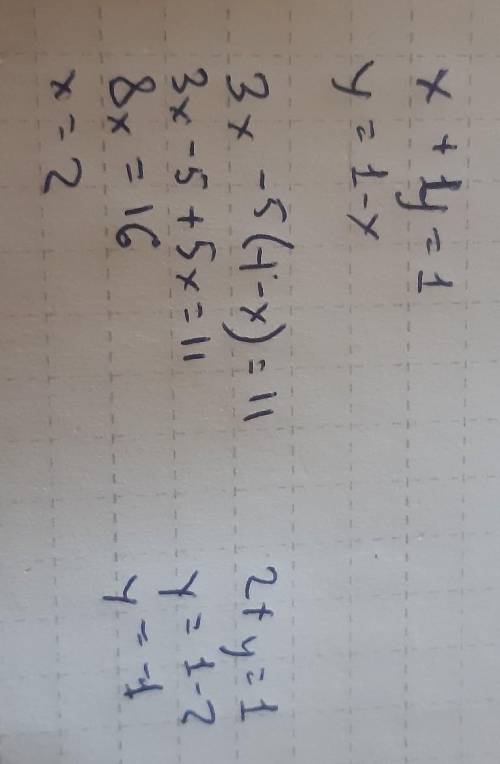 x + 1y = 1
y = 1 - x
3x - 5(1 - x) = 11
3x - 5 + 5x = 11
8x = 16
x = 2
2 + y = 1
y = 1 - 2
y = -1